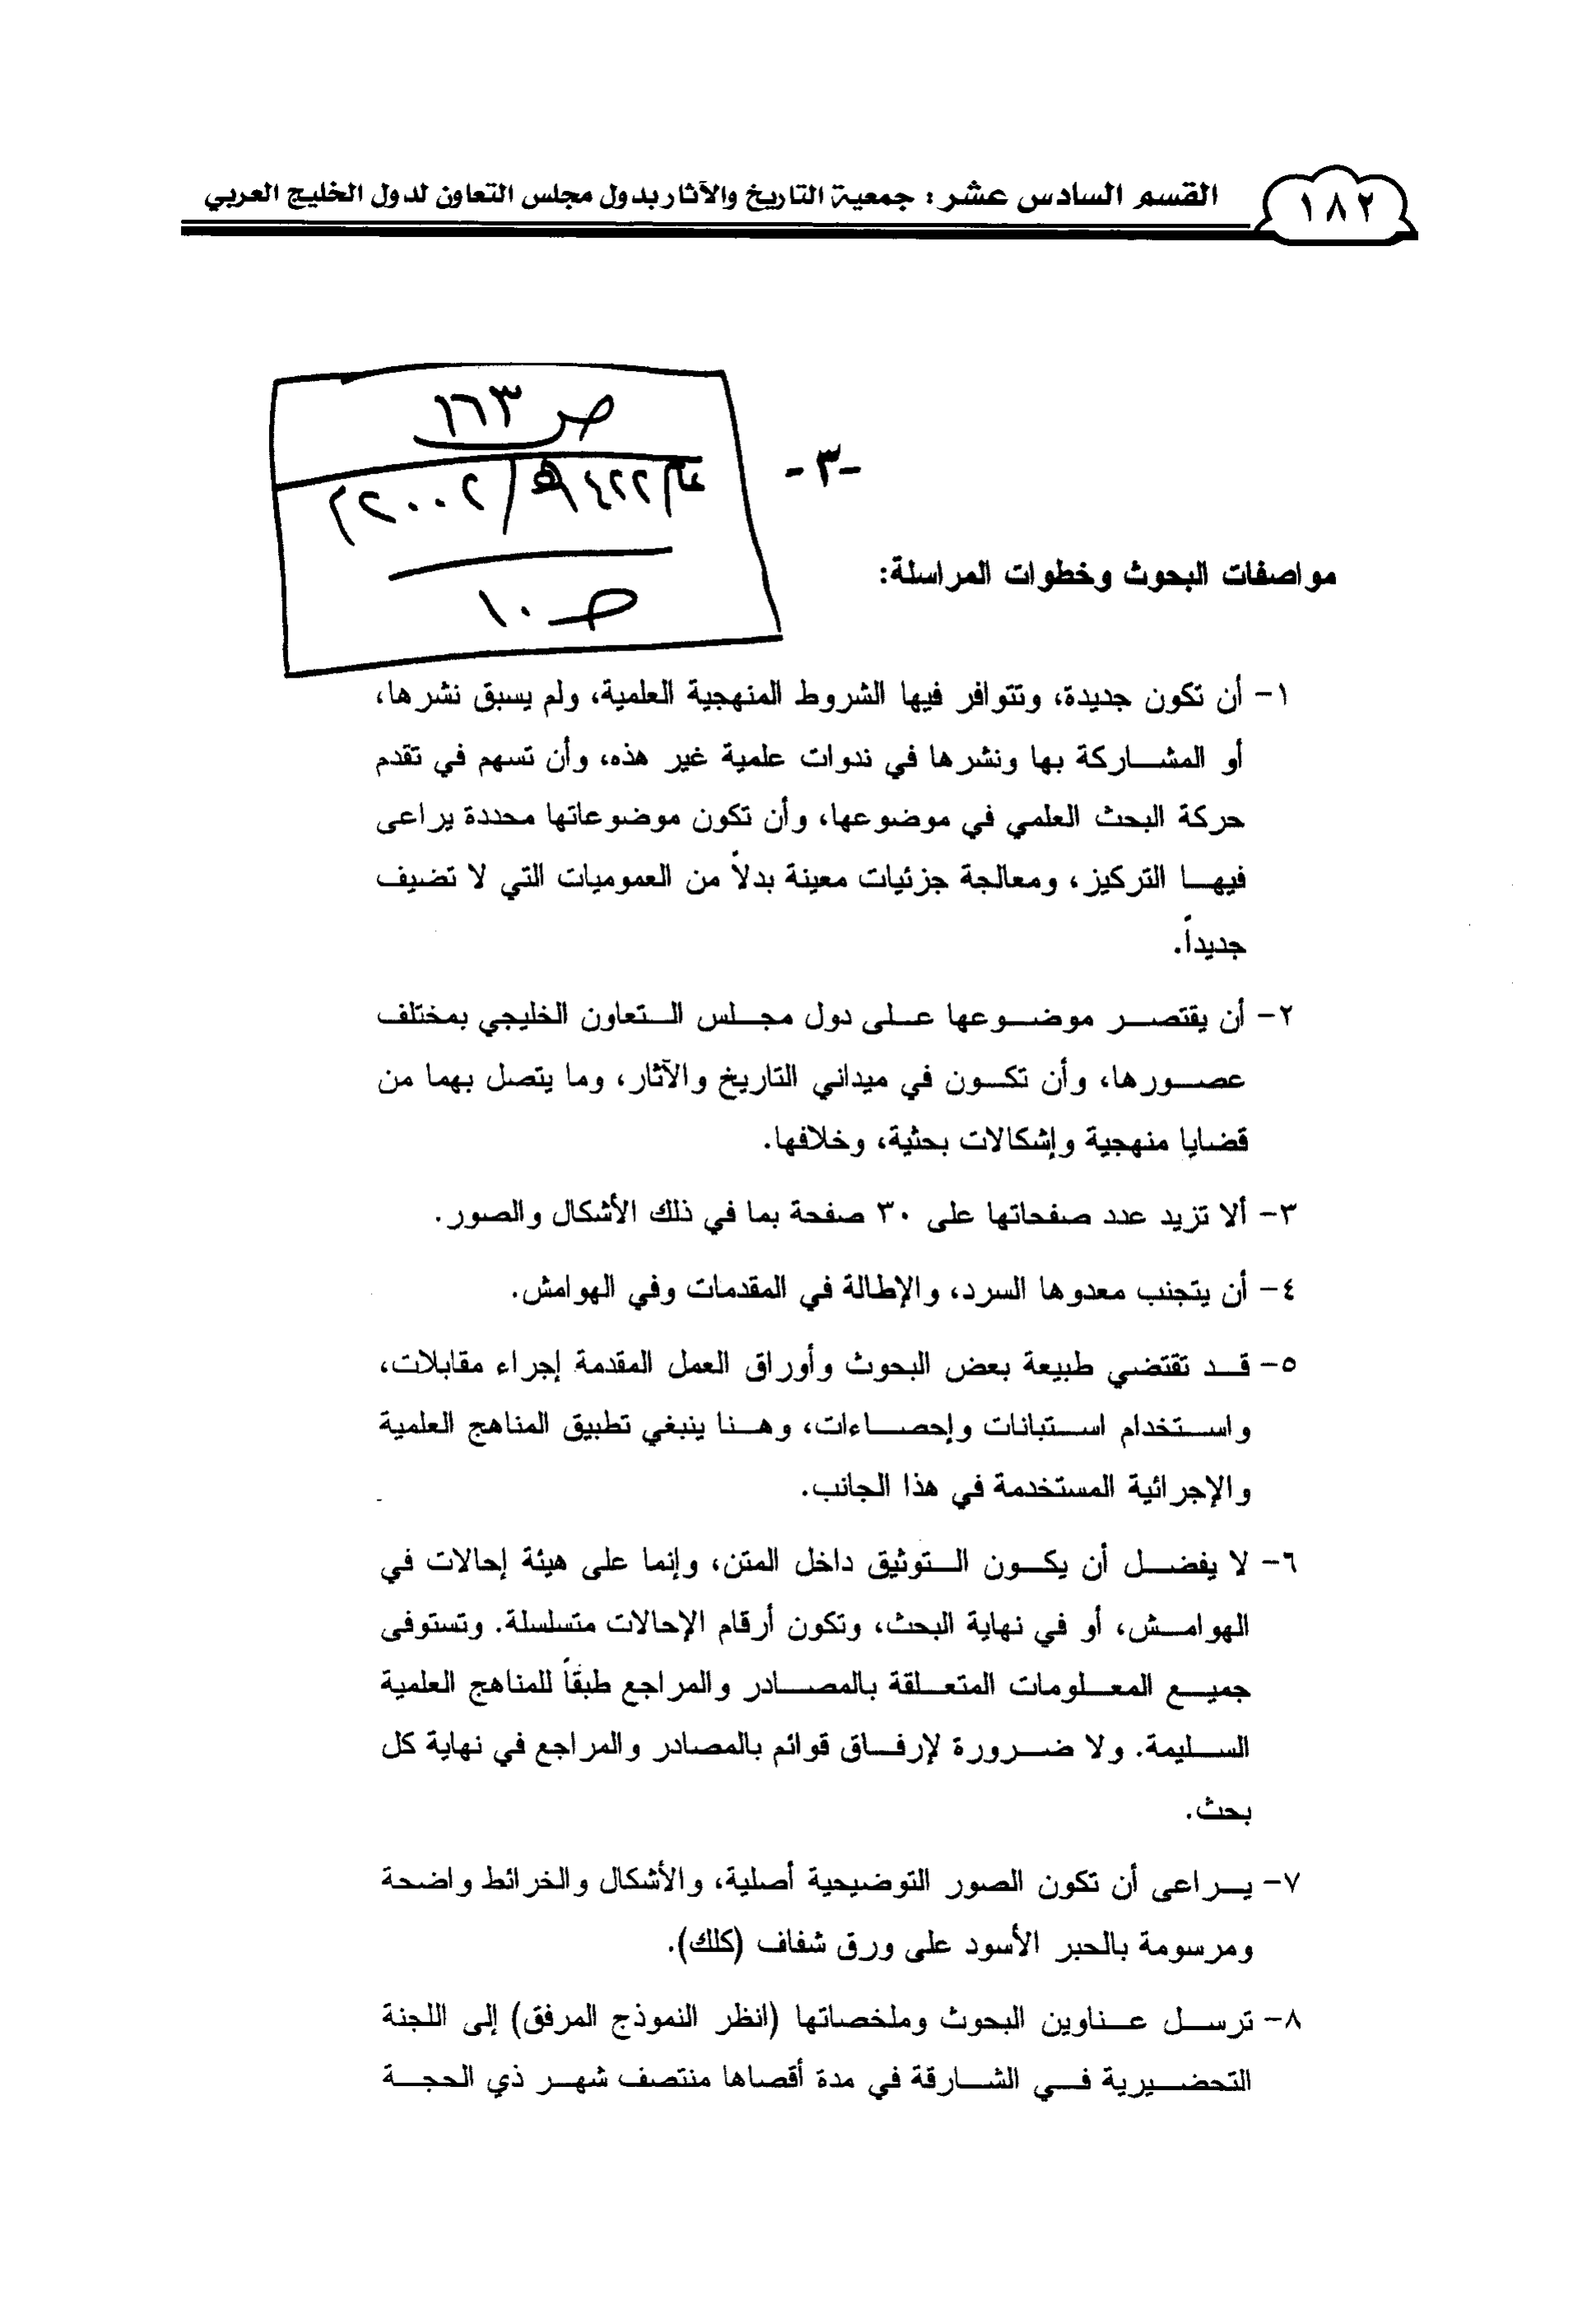 ١٨٢
القسم السادس عشر: جمعية التاريخ والآثار بدول مجلس التعاون لدول الخليج العربي
ص ١٦٣
عام ١٤٢٢هـ/٢٠٠٢م
ص ١٠
-٣-
مواصفات البحوث وخطوات المراسلة:
١- أن تكون جديدة، وتتوافر فيها الشروط المنهجية العلمية، ولم يسبق نشرها،
أو المشاركة بها ونشرها في ندوات علمية غير هذه، وأن تسهم في تقدم
حركة البحث العلمي في موضوعها، وأن تكون موضوعاتها محددة يراعى
فيها التركيز، ومعالجة جزئيات معينة بدلاً من العموميات التي لا تضيف
جديداً.
٢- أن يقتصر موضوعها على دول مجلس التعاون الخليجي بمختلف
عصورها، وأن تكون في ميداني التاريخ والآثار، وما يتصل بهما من
قضايا منهجية وإشكالات بحثية، وخلافها.
٣- ألا تزيد عدد صفحاتها على ٣٠ صفحة بما في ذلك الأشكال والصور.
٤- أن يتجنب معدوها السرد، والإطالة في المقدمات وفي الهوامش.
٥- قد تقتضي طبيعة بعض البحوث وأوراق العمل المقدمة إجراء مقابلات،
واستخدام استبانات وإحصاءات، وهنا ينبغي تطبيق المناهج العلمية
والإجرائية المستخدمة في هذا الجانب.
٦- لا يفضل أن يكون التوثيق داخل المتن، وإنما على هيئة إحالات في
الهوامش، أو في نهاية البحث، وتكون أرقام الإحالات متسلسلة. وتستوفى
جميع المعلومات المتعلقة بالمصادر والمراجع طبقاً للمناهج العلمية
السليمة. ولا ضرورة لإرفاق قوائم بالمصادر والمراجع في نهاية كل
بحث.
٧- يراعى أن تكون الصور التوضيحية أصلية، والأشكال والخرائط واضحة
ومرسومة بالحبر الأسود على ورق شفاف (كلك).
٨- ترسل عناوين البحوث وملخصاتها (انظر النموذج المرفق) إلى اللجنة
التحضيرية في الشارقة في مدة أقصاها منتصف شهر ذي الحجة